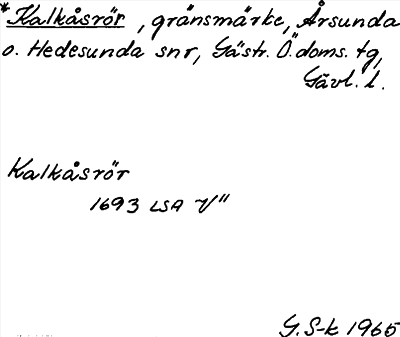 *Kalkåsrör, gränsmärke, Årsunda
o. Hedesunda snr, Gästr. Ö. doms. tg,
Gävl. l.
Kalkåsrör
1693 LSA V"
G. S-k 1965